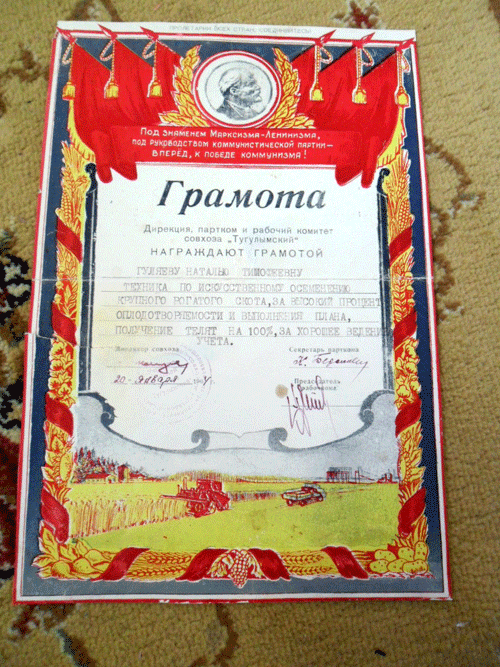 ПРОЛЕТАРИИ ВСЕХ СТРАН, СОЕДИНЯЙТЕСЬ!
Под знаменем Марксизма-Ленинизма,
под руководством коммунистической партии—
вперёд, к победе коммунизма!
Грамота
Дирекция, партком и рабочий комитет
совхоза „Тугулымский"
НАГРАЖДАЮТ ГРАМОТОЙ
ГУЛЯЕВУ НАТАЛЬЮ ТИМОФЕЕВНУ
ТЕХНИКА ПО ИСКУССТВЕННОМУ ОСЕМЕНЕНИЮ
КРУПНОГО РОГАТОГО СКОТА, ЗА ВЫСОКИЙ ПРОЦЕНТ
ОПЛОДОТВОРЯЕМОСТИ И ВЫПОЛНЕНИЯ ПЛАНА,
ПОЛУЧЕНИЕ ТЕЛЯТ НА 100%, ЗА ХОРОШЕЕ ВЕДЕНИЕ
УЧЕТА.
Директор совхоза
Секретарь парткома
20 января
Председатель
рабочкома